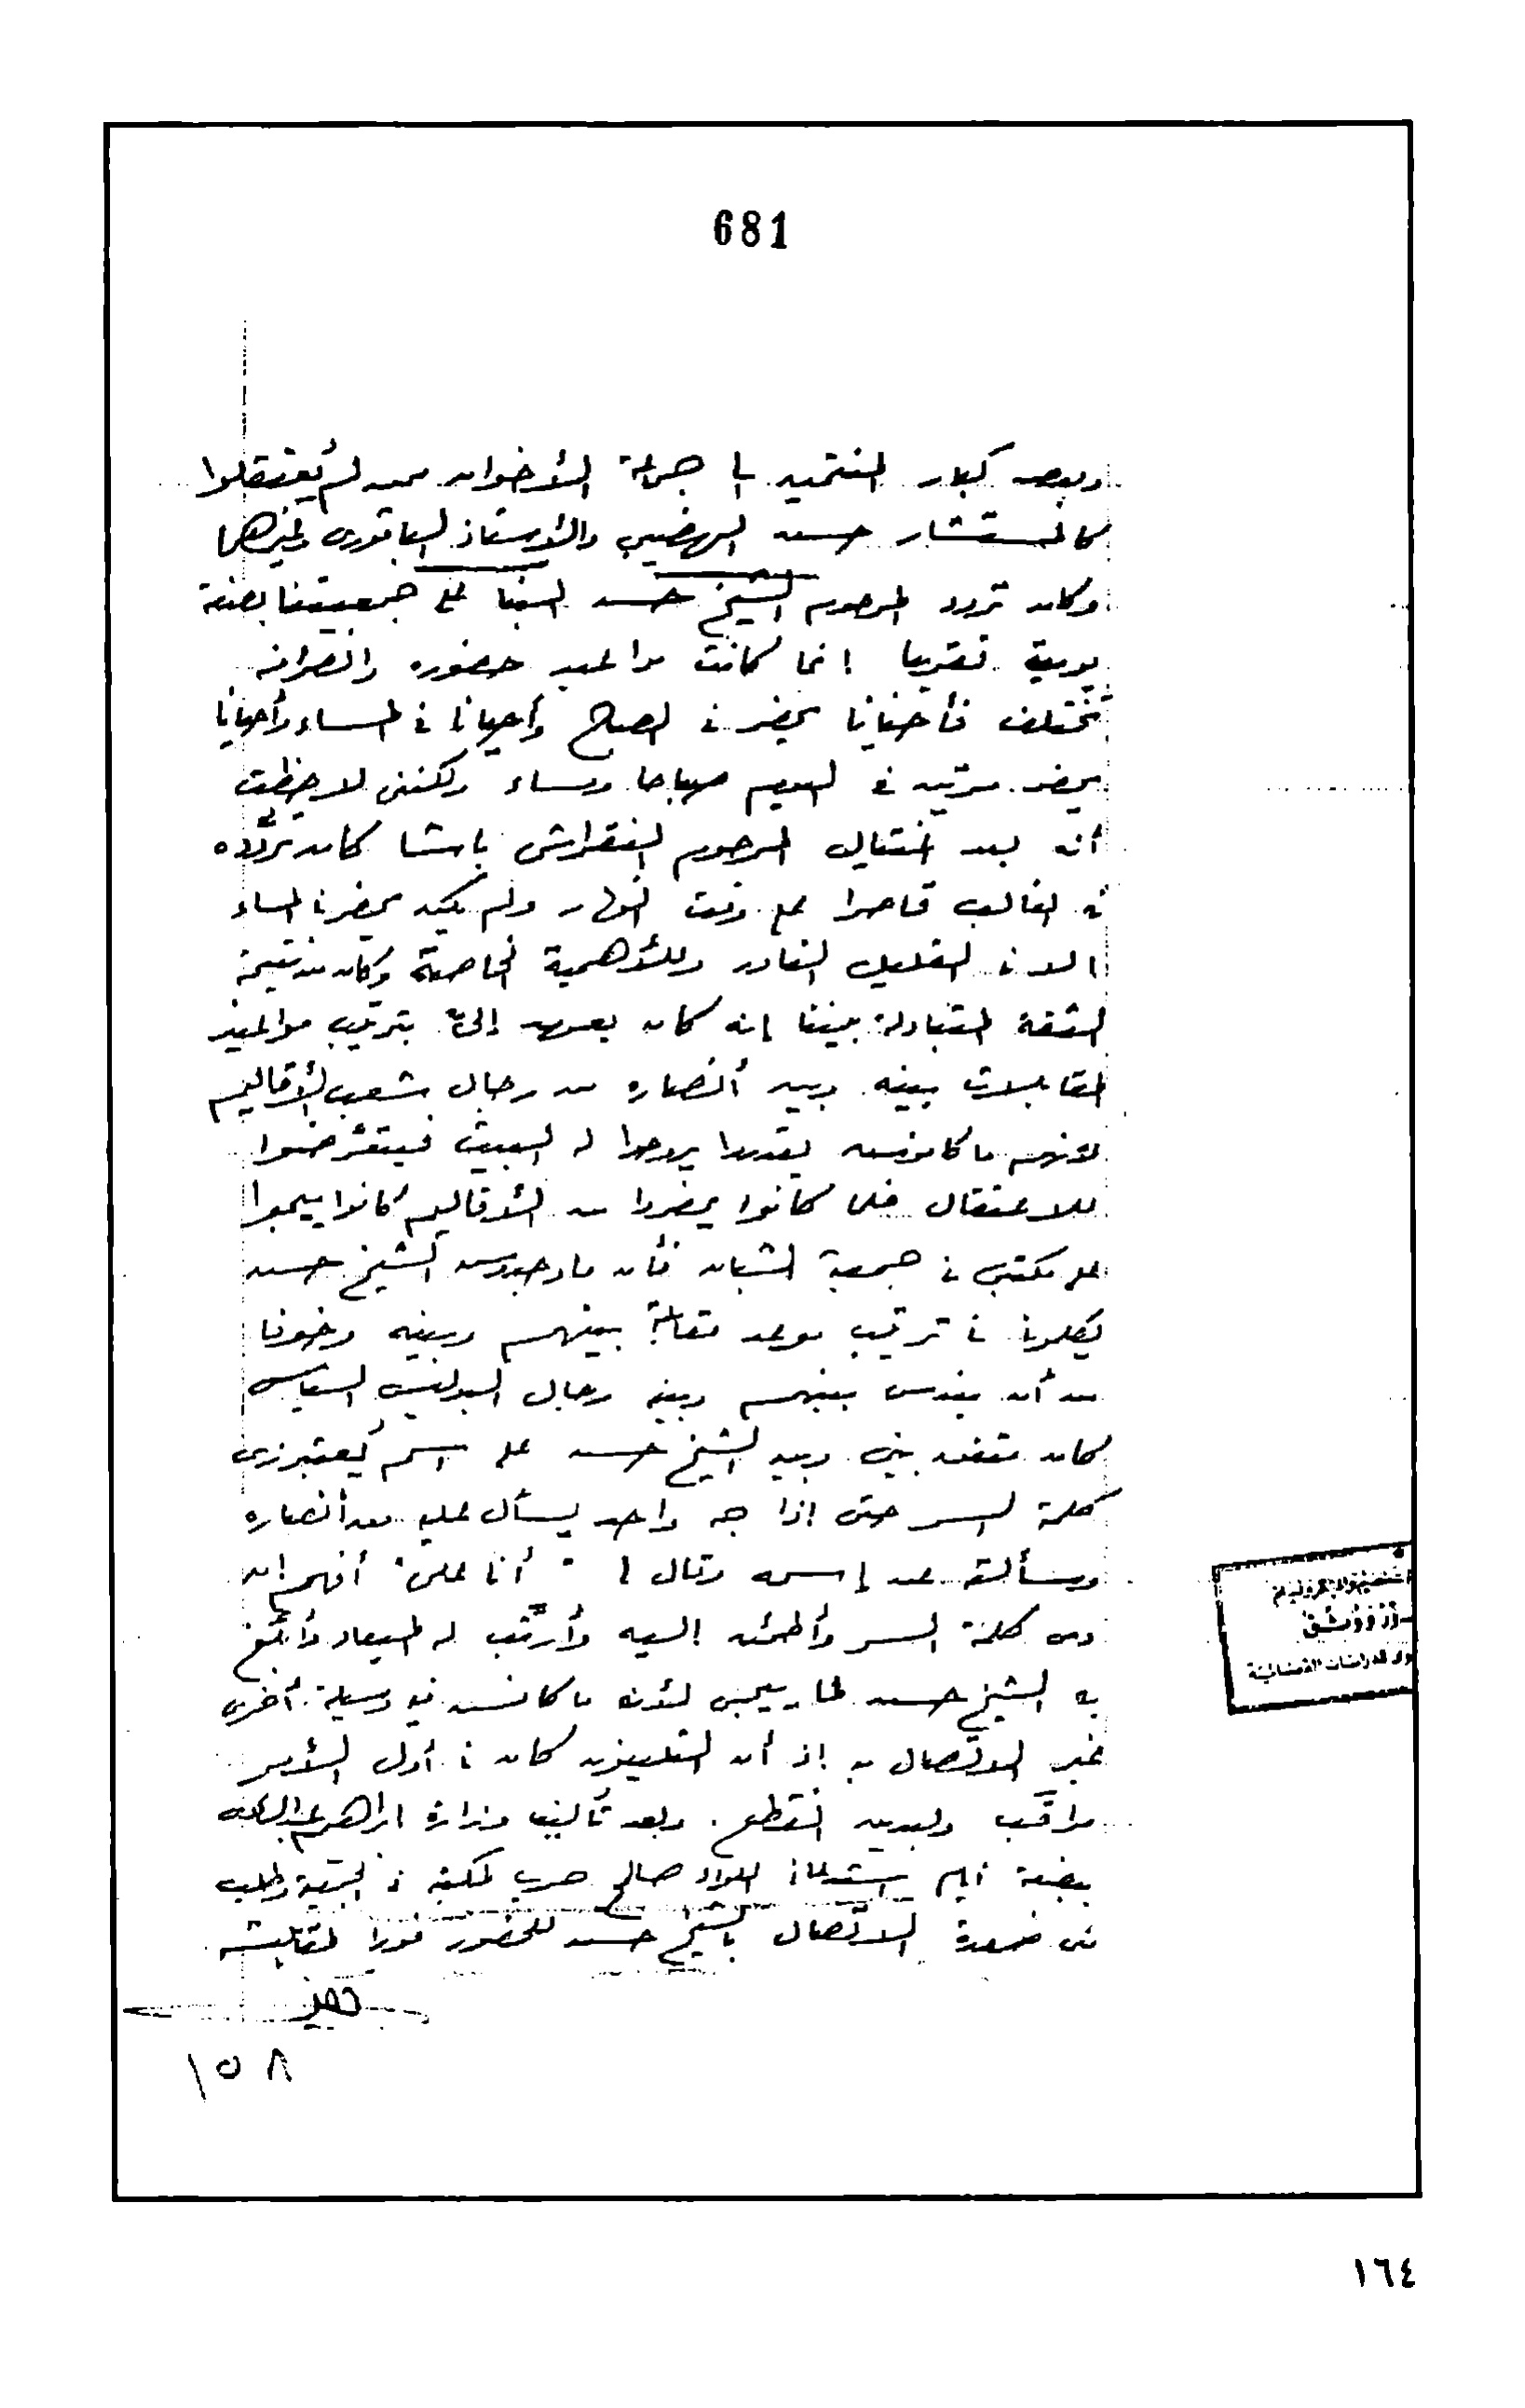 681
وبعض كبار المنتمين الى جماعة الأخوان ممن لم يُعتقلوا
كالمستشار حسن الهضيبي والأستاذ الباقورى وغيرهما
وكان تردد المرحوم الشيخ حسن البنا على جمعيتنا بصفة
يومية تقريبا انما كانت مواعيد حضوره وانصرافه
تختلف فأحيانا يحضر فى الصباح وأحيانا فى المساء وأحيانا
يحضر مرتين فى اليوم صباحا ومساء ولكننى لاحظت
أنه بعد اغتيال المرحوم النقراشى باشا كان تردده
فى الغالب قاصرا على وقت النهار ولم يكن يحضر فى المساء
الا فى القليل النادر وللأهمية الخاصة وكان من نتيجة
الثقة المتبادلة بيننا إنه كان يعهد إلىّ بترتيب مواعيد
المقابلات بينه وبين أنصاره من رجال شعب الأقاليم
لأنهم ما كانوش يقدروا يروحوا له البيت فيتعرضوا
للاعتقال فلما كانوا يحضروا من الأقاليم كانوا ييجوا
على مكتبى فى جمعية الشبان فأن ما وجدوش الشيخ حسن
يكلمونى فى ترتيب موعد مقابلة بينهم وبينه وخوفا
من أن يندس بينهم وبينه رجال البوليس السياسى
كان متفق بينى وبين الشيخ حسن على اسم يُعتبر زى
كلمة السر حتى اذا جه واحد يسأل عليه من أنصاره
وسألته عن إسمه وقال لى " أنا على " أفهم ان
دى كلمة السر وأطمئن اليه وأرتّب له الميعاد وأبلغ
به الشيخ حسن لما ييجى لأنه ما كانش فيه وسيلة أخرى
غير الاتصال به إذ أن التليفون كان فى أول الأمر
مراقَب وبعدين انقطع. وبعد تأليف وزارة ابراهيم عبد الهادى
ببضعة أيام استدعانى اللواء صالح حرب لمكتبه فى الجمعية وطلب
منى ضرورة الاتصال بالشيخ حسن للحضور فورا لمقابلته
١٥٨
١٦٤